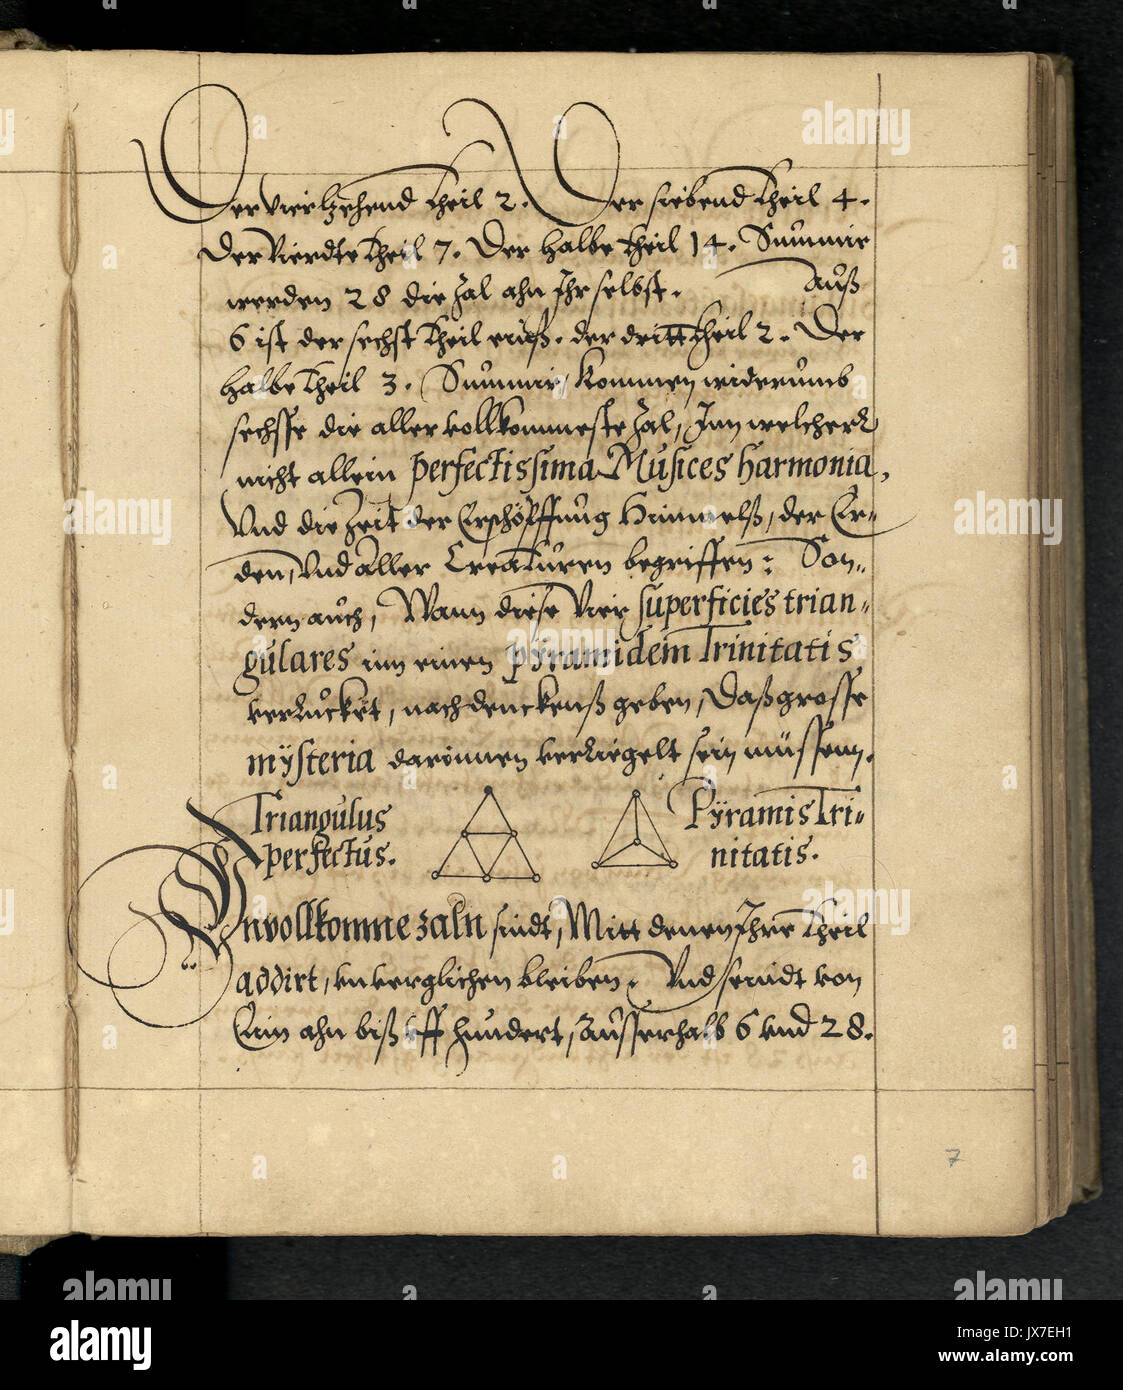 Der Viertzehend theil 2. Der siebend theil 4.
Der Vierdte theil 7. Der halbe theil 14. Summir
werden 28 die zal ahn Jhr selbst. Auß
6 ist der sechst theil einß. der dritt theil 2. Der
halbe theil 3. Summir, kommen widerumb
sechsse die aller vollkommeste zal, Jnn welcher
nicht allein perfectissima Musices harmonia,
Vnd die Zeit der Erschöpffung Himmelß, der Er„
den, Vnd Aller Creaturen begriffen: Son„
dern auch, Wann diese Vier superficies trian„
gulares inn einen pÿramidem Trinitatis
verruckët, nachdenckenß geben, Daß grosse
mÿsteria darinnen versiegelt sein müssenn.
Triangulus
perfectus.
Pÿramis Tri„
nitatis.
Vnvollkomne zaln sindt, Mitt denen Jhre theil
addirt, vnverglichen bleiben. Vnd seindt von
Ein ahn biß vff hundert, Ausserhalb 6 vnd 28.
7
alamy
a
alamy
JX7EH1
www.alamy.com